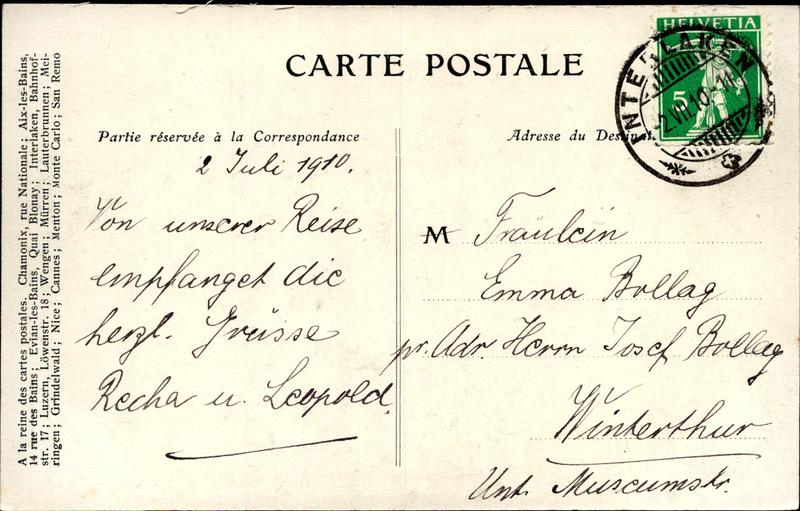 CARTE POSTALE
HELVETIA
5
INTERLAKEN
2.VII.10
Partie réservée à la Correspondance
2 Juli 1910.
Von unserer Reise
empfanget die
herzl. Grüsse
Recha u. Leopold.
Adresse du Destinat
M Fräulein
Emma Bollag
pr. Adr. Herrn Josef Bollag
Winterthur
Unt. Museumstr.
A la reine des cartes postales. Chamonix, rue Nationale; Aix-les-Bains,
14 rue des Bains; Evian-les-Bains, Quai Blonay; Interlaken, Bahnhof-
str. 17; Luzern, Löwenstr. 18; Wengen; Mürren; Lauterbrunnen; Mei-
ringen; Grindelwald; Nice; Cannes; Menton; Monte Carlo; San Remo